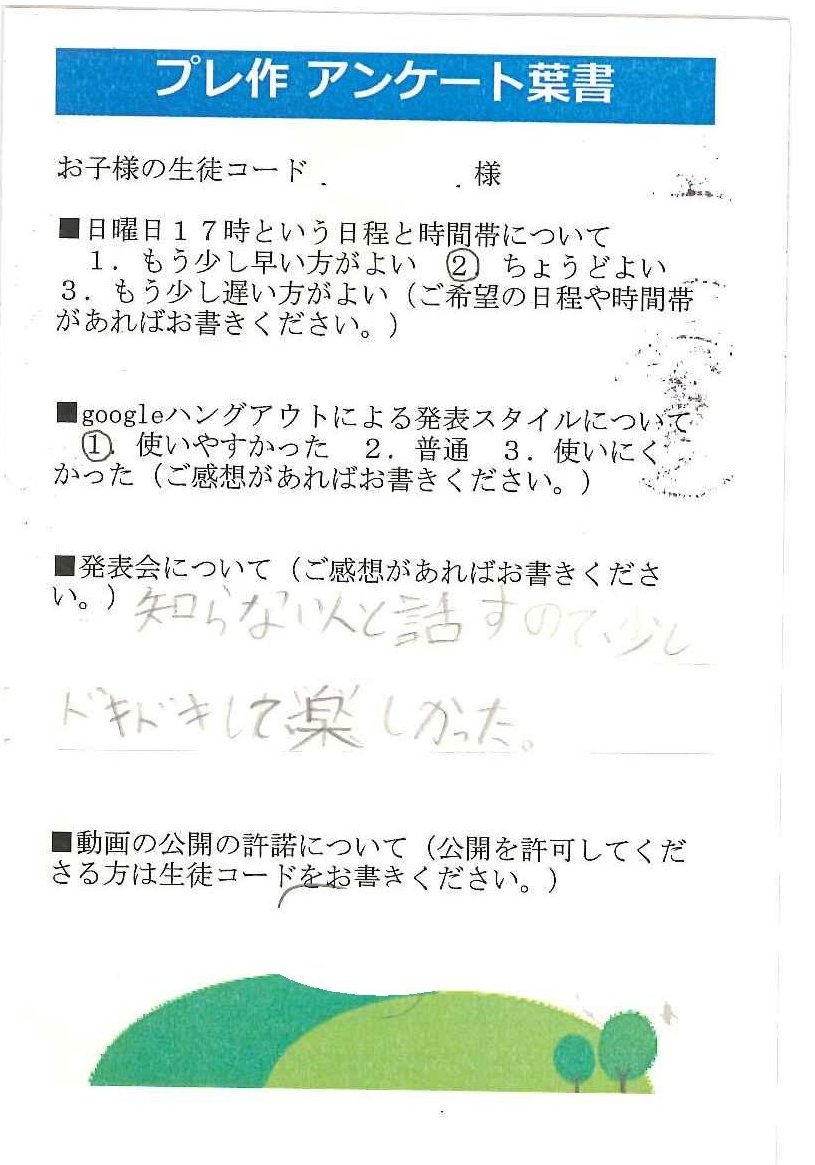 プレ作 アンケート葉書
お子様の生徒コード 様
■日曜日１７時という日程と時間帯について
１．もう少し早い方がよい ② ちょうどよい
３．もう少し遅い方がよい（ご希望の日程や時間帯
があればお書きください。）
■googleハングアウトによる発表スタイルについて
①．使いやすかった ２．普通 ３．使いにく
かった（ご感想があればお書きください。）
■発表会について（ご感想があればお書きくださ
い。）知らない人と話すので、少し
ドキドキして楽しかった。
■動画の公開の許諾について（公開を許可してくだ
さる方は生徒コードをお書きください。）